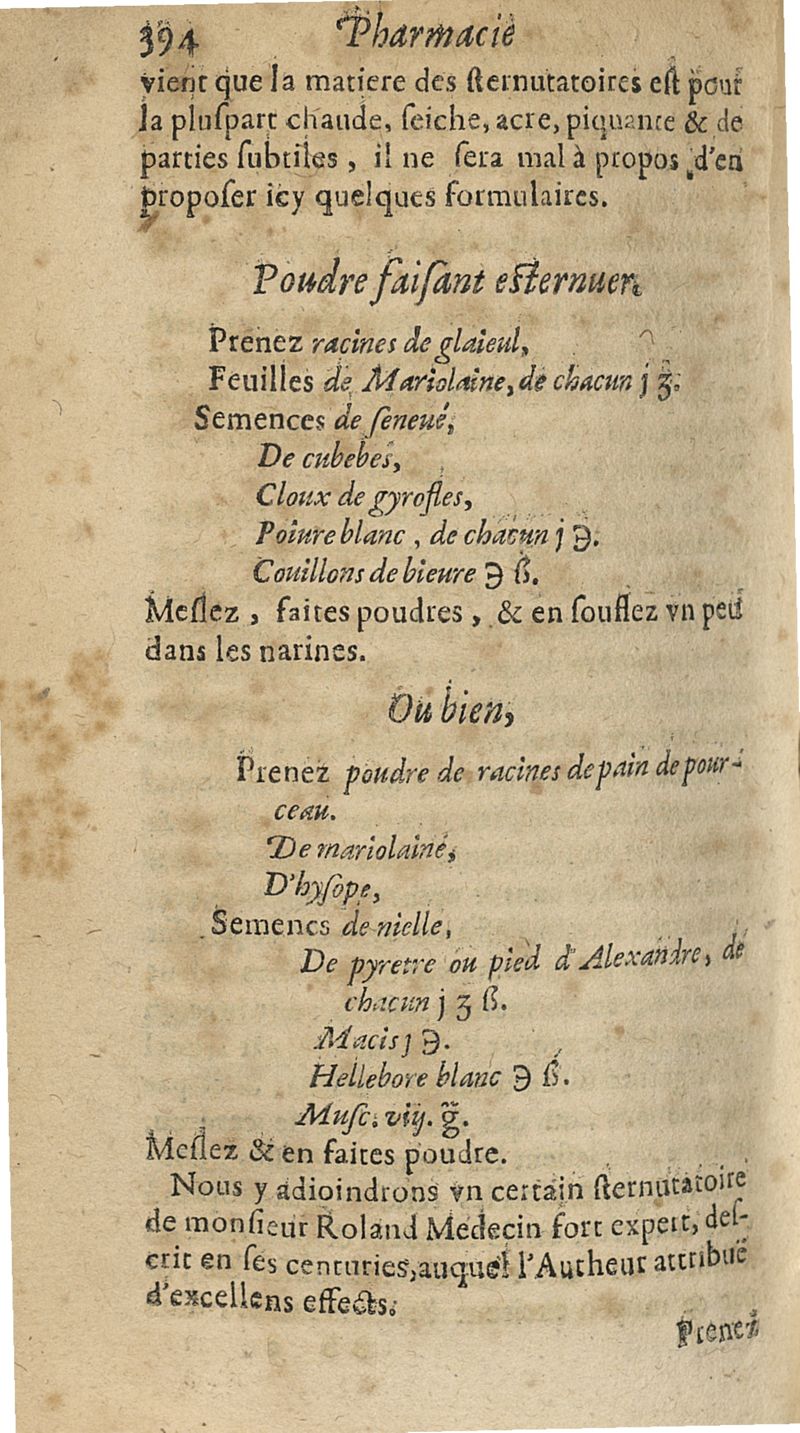 394 Pharmacie
vient que la matiere des ſternutatoires eſt pour
la pluſpart chaude, ſeiche, acre, piquante & de
parties ſubtiles, il ne ſera mal à propos d'en
propoſer icy quelques formulaires.
Poudre faiſant eſternuer.
Prenez racines de glaieul,
Feuilles de Mariolaine, de chacun j ʒ.
Semences de ſeneué,
De cubebes,
Cloux de gyrofles,
Poiure blanc, de chacun j ℈.
Couillons de bieure ℈ ß.
Meſlez, faites poudres, & en ſouflez vn peu
dans les narines.
Ou bien,
Prenez poudre de racines de pain de pour-
ceau.
De mariolaine,
D'hyſope,
Semencs de nielle,
De pyretre ou pied d'Alexandre, de
chacun j ʒ ß.
Macis j ℈.
Hellebore blanc ℈ ß.
Muſc. viij. g̃.
Meſlez & en faites poudre.
Nous y adioindrons vn certain ſternutatoire
de monſieur Roland Medecin fort expert, deſ-
crit en ſes centuries, auquel l'Autheur attribuë
d'excellens effects.
Prenez